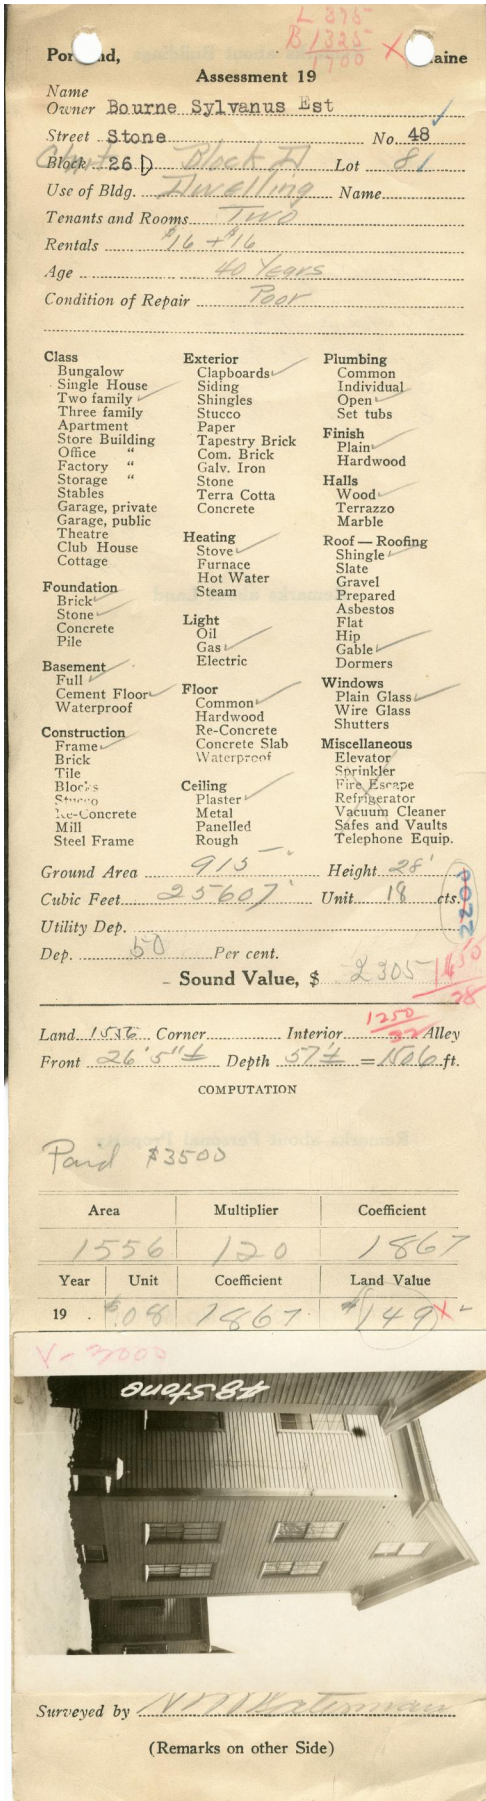 L 375
B 1325
1700 X
Portland, Maine
Assessment 19
Name
Owner Bourne Sylvanus Est
Street Stone No. 48
Chart
Block 26 D Block D Lot 81
Use of Bldg. Dwelling Name
Tenants and Rooms Two
Rentals $16 + $16
Age 40 Years
Condition of Repair Poor
Class
Bungalow
Single House
Two family ✓
Three family
Apartment
Store Building
Office "
Factory "
Storage "
Stables
Garage, private
Garage, public
Theatre
Club House
Cottage
Foundation
Brick ✓
Stone ✓
Concrete
Pile
Basement
Full ✓
Cement Floor ✓
Waterproof
Construction
Frame ✓
Brick
Tile
Blocks
Stucco
Re-Concrete
Mill
Steel Frame
Exterior
Clapboards ✓
Siding
Shingles
Stucco
Paper
Tapestry Brick
Com. Brick
Galv. Iron
Stone
Terra Cotta
Concrete
Heating
Stove ✓
Furnace
Hot Water
Steam
Light
Oil
Gas ✓
Electric
Floor
Common ✓
Hardwood
Re-Concrete
Concrete Slab
Waterproof
Ceiling
Plaster ✓
Metal
Panelled
Rough
Plumbing
Common
Individual
Open ✓
Set tubs
Finish
Plain ✓
Hardwood
Halls
Wood ✓
Terrazzo
Marble
Roof — Roofing
Shingle ✓
Slate
Gravel
Prepared
Asbestos
Flat
Hip
Gable ✓
Dormers
Windows
Plain Glass ✓
Wire Glass
Shutters
Miscellaneous
Elevator
Sprinkler
Fire Escape
Refrigerator
Vacuum Cleaner
Safes and Vaults
Telephone Equip.
Ground Area 915 Height 28'
Cubic Feet 25607' Unit 18 cts.
2200
Utility Dep.
Dep. 50 Per cent.
Sound Value, $ 2305
1450
28
1250
32
Land 1556 Corner Interior Alley
Front 26'5"± Depth 57'± = 1506 ft.
COMPUTATION
Paid $3500
Area Multiplier Coefficient
1556 120 1867
Year Unit Coefficient Land Value
19 $.08 1867 $149 X
V-3000
48 Stone
Surveyed by
(Remarks on other Side)